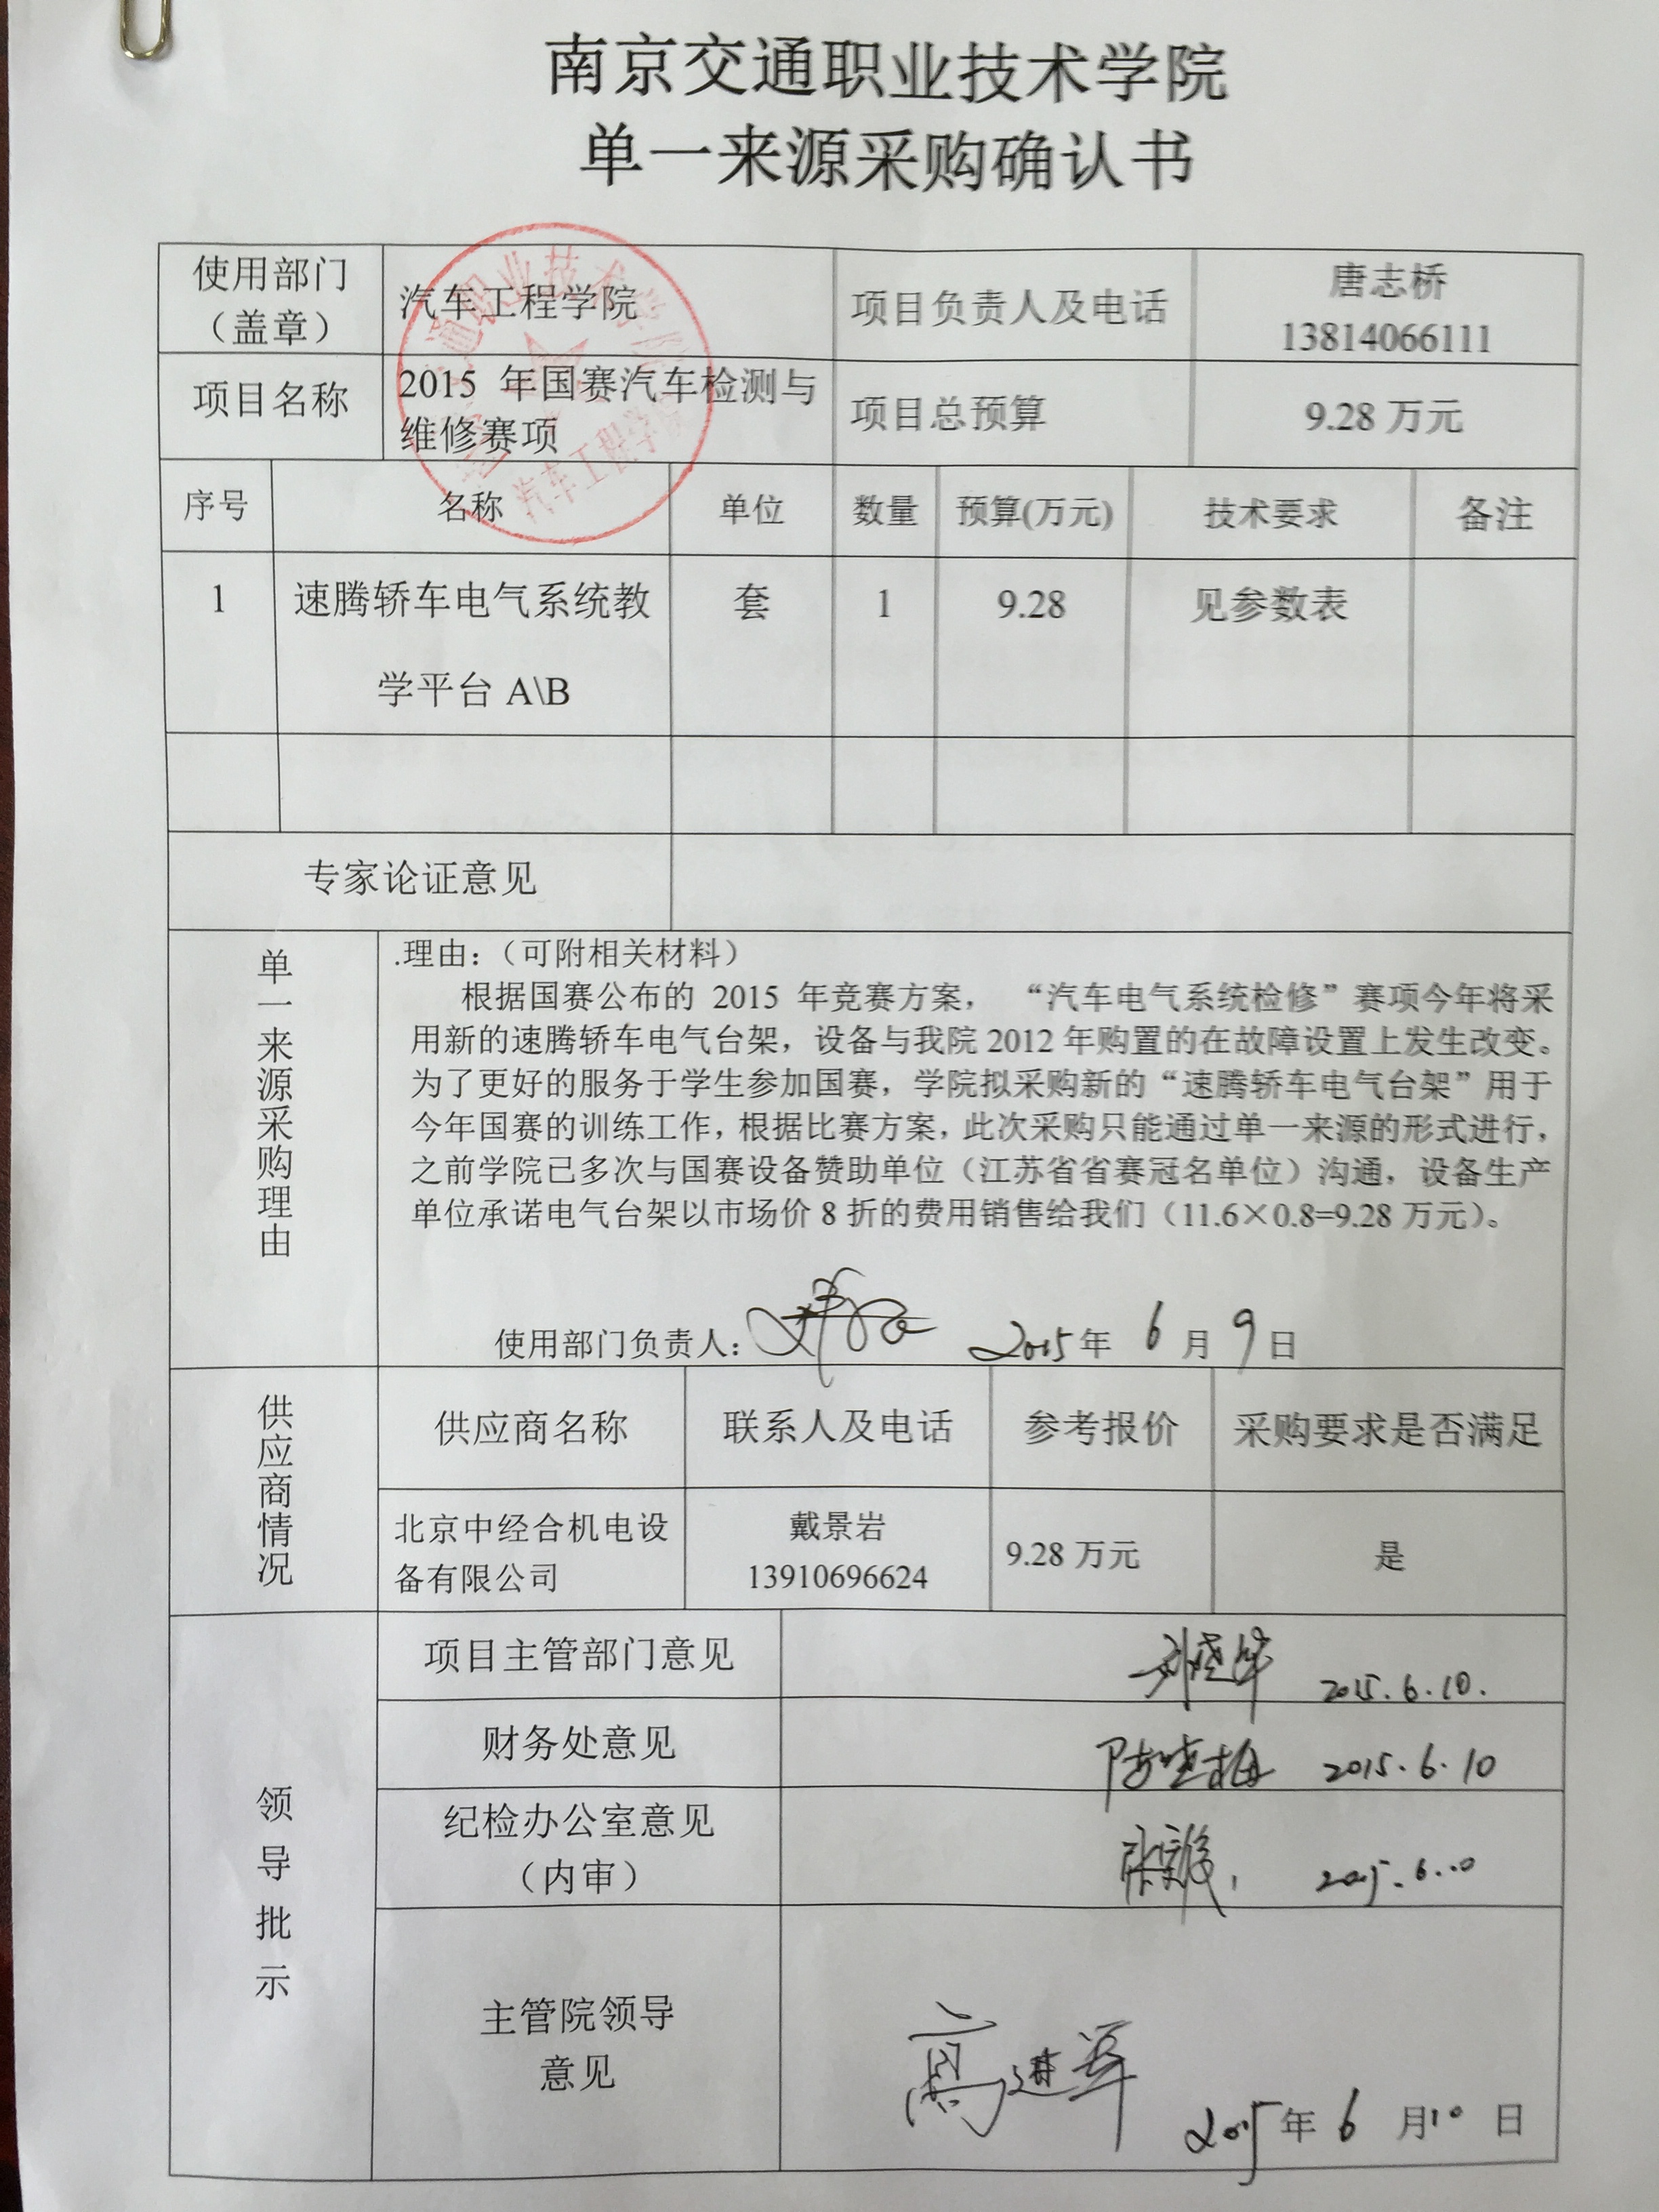 南京交通职业技术学院
单一来源采购确认书
使用部门
（盖章）
汽车工程学院
项目负责人及电话
唐志桥
13814066111
项目名称
2015 年国赛汽车检测与
维修赛项
项目总预算
9.28 万元
通职业技术学院
汽车工程学院
序号 名称 单位 数量 预算(万元) 技术要求 备注
1 速腾轿车电气系统教 套 1 9.28 见参数表
学平台 A\B
专家论证意见
单一来源采购理由
.理由：（可附相关材料）
根据国赛公布的 2015 年竞赛方案， “汽车电气系统检修”赛项今年将采
用新的速腾轿车电气台架，设备与我院 2012 年购置的在故障设置上发生改变。
为了更好的服务于学生参加国赛，学院拟采购新的“速腾轿车电气台架”用于
今年国赛的训练工作，根据比赛方案，此次采购只能通过单一来源的形式进行，
之前学院已多次与国赛设备赞助单位（江苏省省赛冠名单位）沟通，设备生产
单位承诺电气台架以市场价 8 折的费用销售给我们（11.6×0.8=9.28 万元）。
使用部门负责人： 2015年 6 月 9 日
供应商情况
供应商名称 联系人及电话 参考报价 采购要求是否满足
北京中经合机电设
备有限公司
戴景岩
13910696624
9.28 万元
是
领导批示
项目主管部门意见
2015.6.10.
财务处意见
陆晓梅 2015.6.10
纪检办公室意见
（内审）
2015.6.10
主管院领导
意见
高进军
2015年 6 月10 日